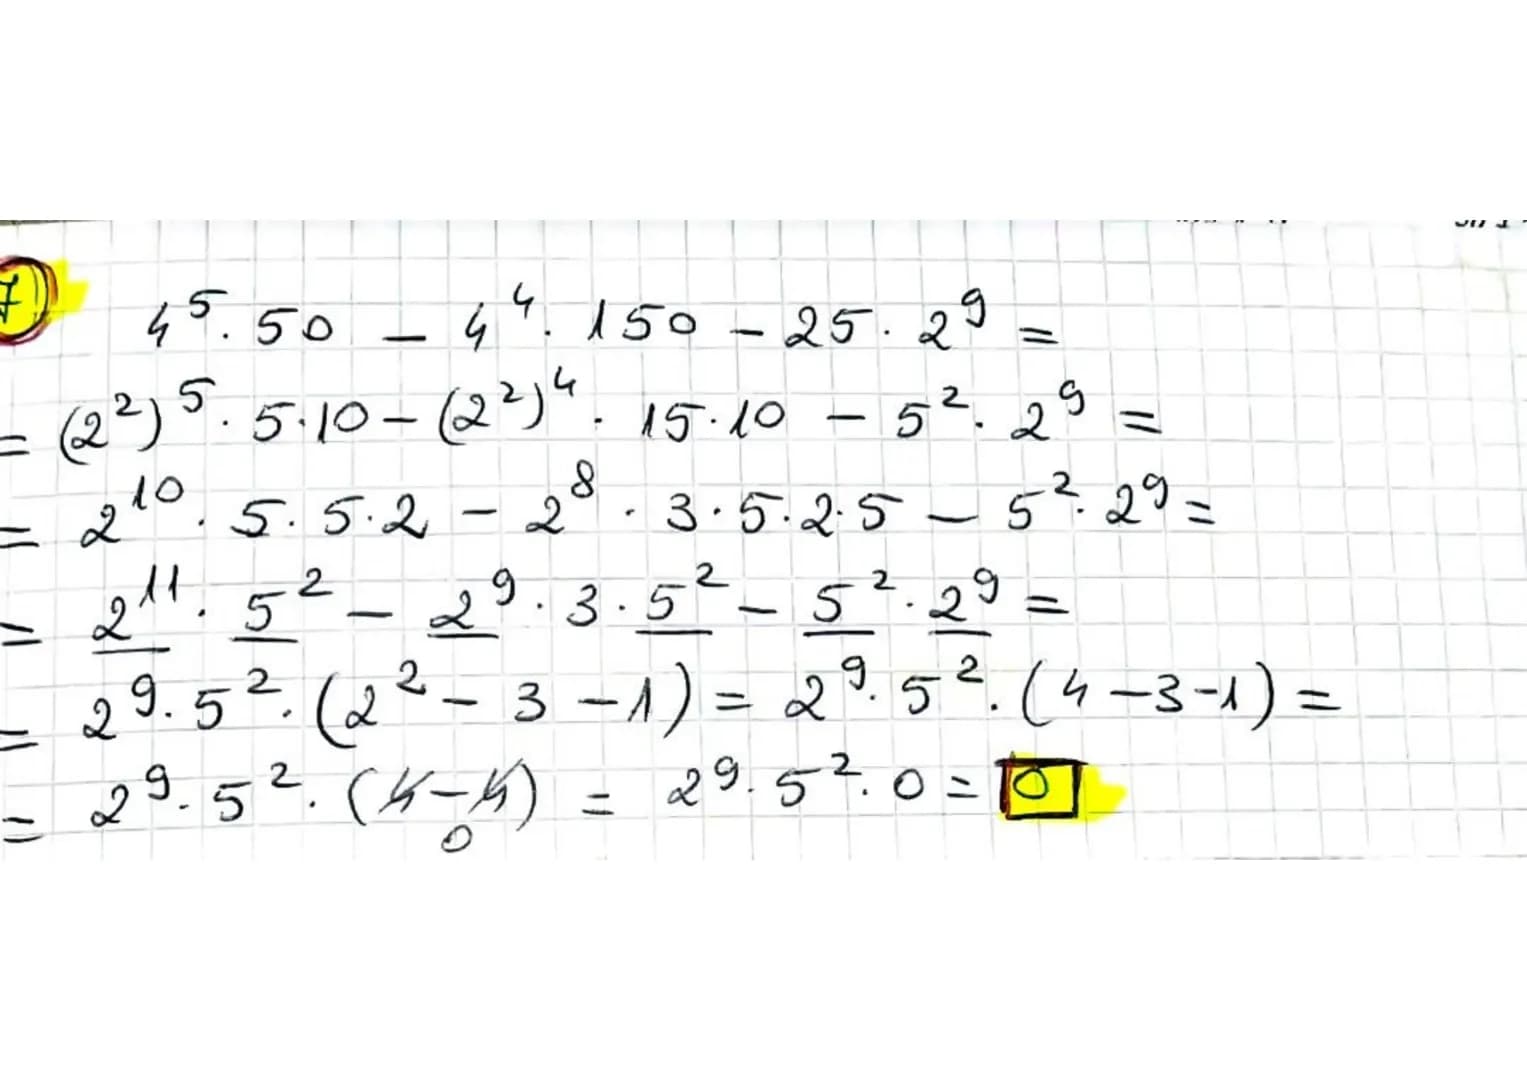 7 4⁵·50 – 4⁴·150 – 25·2⁹ =
= (2²)⁵·5·10 – (2²)⁴·15·10 – 5²·2⁹ =
= 2¹⁰·5·5·2 – 2⁸·3·5·2·5 – 5²·2⁹ =
= 2¹¹·5² – 2⁹·3·5² – 5²·2⁹ =
= 2⁹·5²·(2² – 3 – 1) = 2⁹·5²·(4 – 3 – 1) =
= 2⁹·5²·(4 – 4) = 2⁹·5²·0 = 0
0